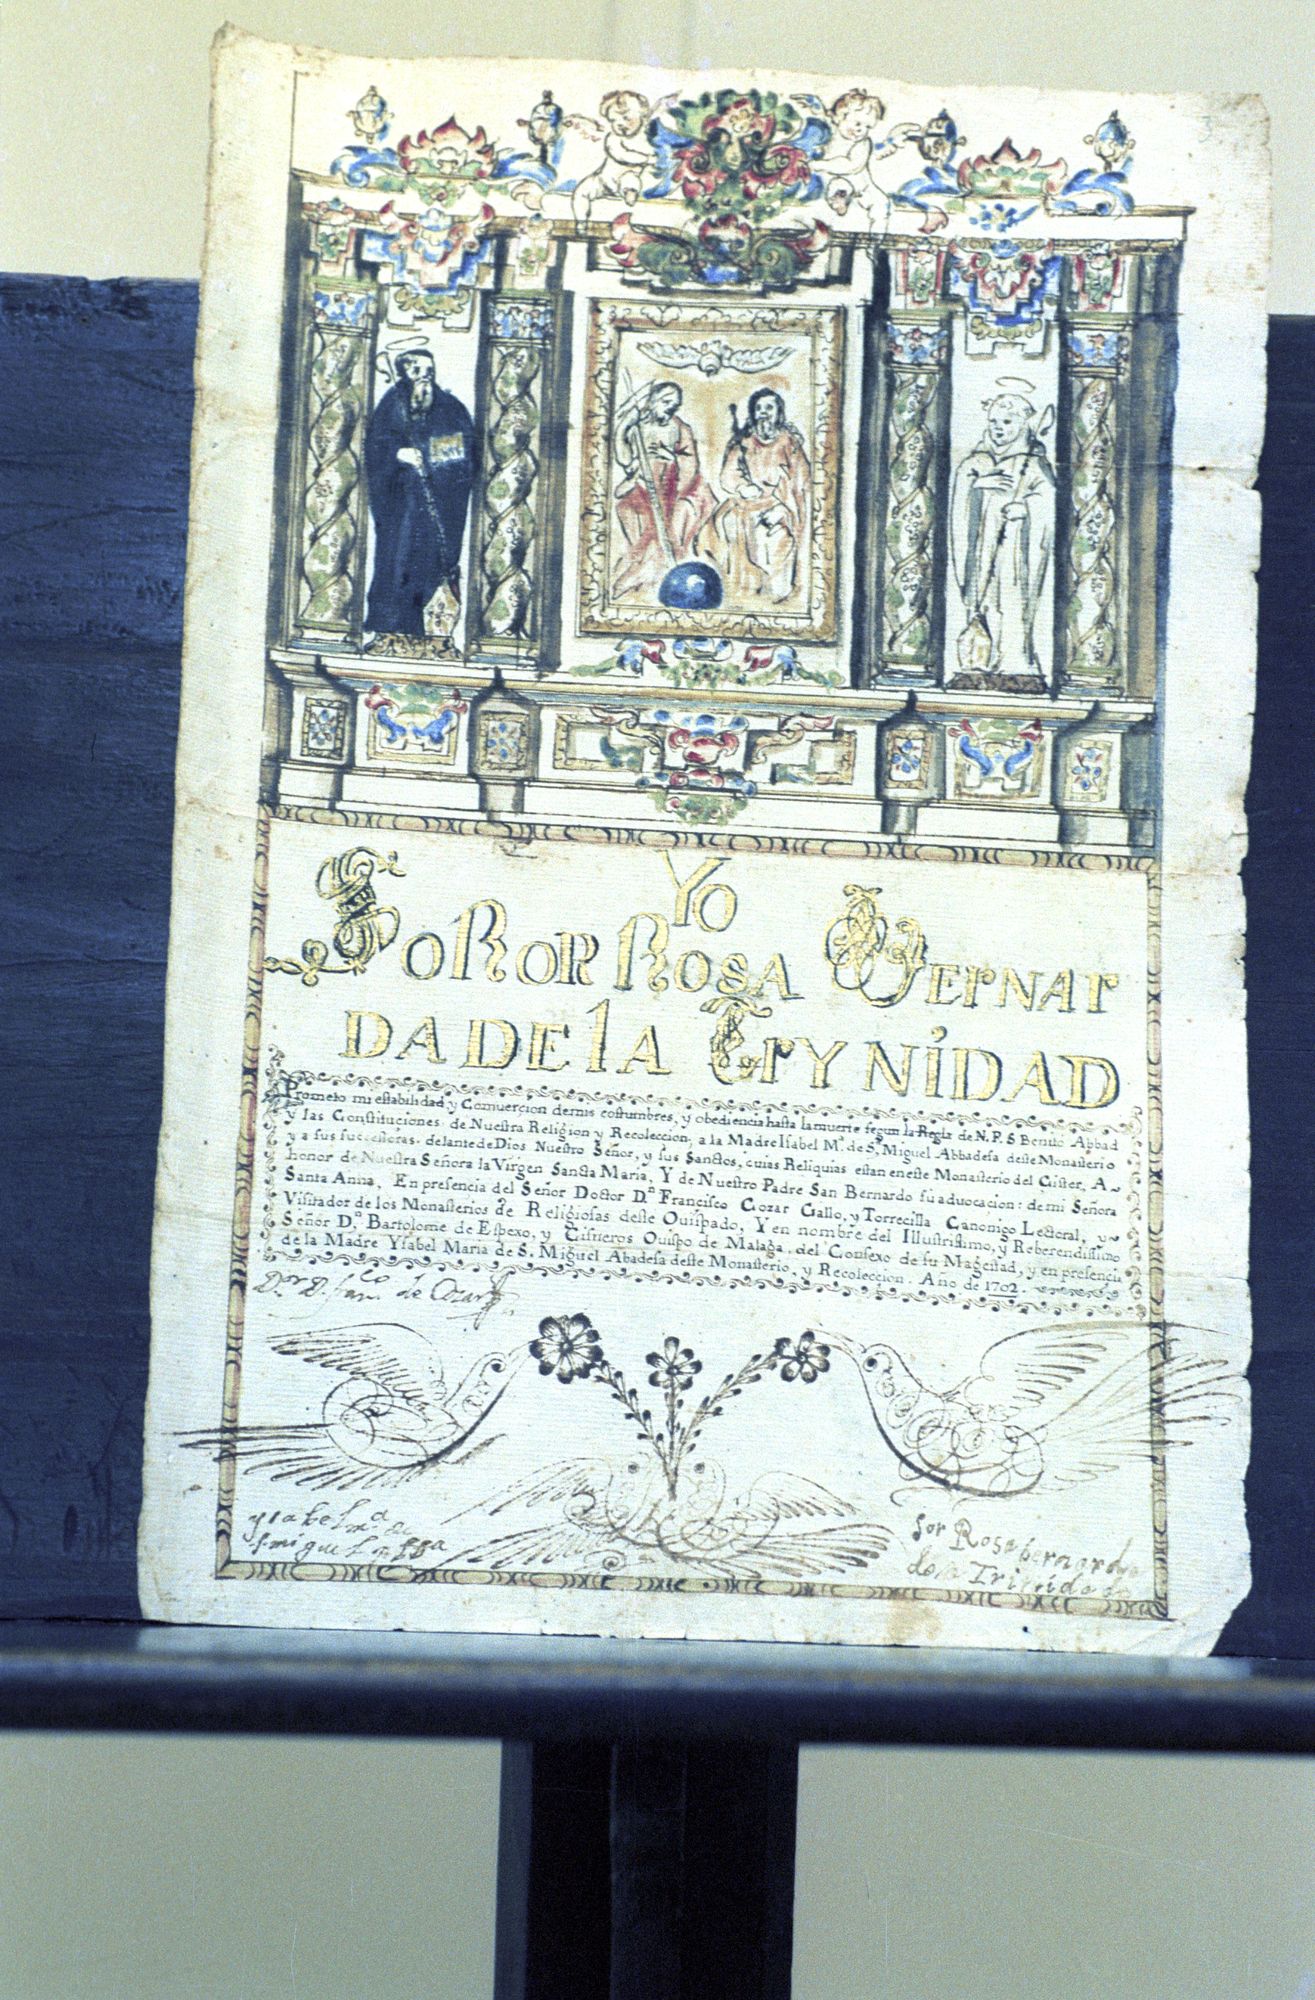 Yo
SoRoR Rosa Bernar
da de la Trynidad
Prometo mi estabilidad, y Comuercion demis costumbres, y obediencia hasta la muerte segun la Regla de N. P. S. Benito Abbad
y las Constituciones de Nuestra Religion y Recoleccion, a la Madre Isabel Mª. de S. Miguel Abbadesa deste Monasterio
y a sus successoras. delante de Dios Nuestro Señor, y sus Sanctos, cuias Reliquias estan eneste Monasterio del Cister, A
honor de Nuestra Señora la Virgen Sancta Maria, Y de Nuestro Padre San Bernardo su aduocacion: de mi Señora
Santa Anna, En presencia del Señor Doctor Dn. Francisco Cozar Gallo, y Torrecilla Canonigo Lectoral, y
Visitador de los Monasterios de Religiosas deste Ouispado, Y en nombre del Illustrissimo, y Reberendissimo
Señor Dn. Bartolome de Espexo, y Cisneros Ouispo de Malaga, del Consexo de su Magestad, y en presencia
de la Madre Ysabel Maria de S. Miguel Abadesa deste Monasterio, y Recoleccion. Año de 1702.
Dor. D. Franco. de Cozar
ysabel mª. de
S miguel
sor Rosa bernarda
de la Trinidad